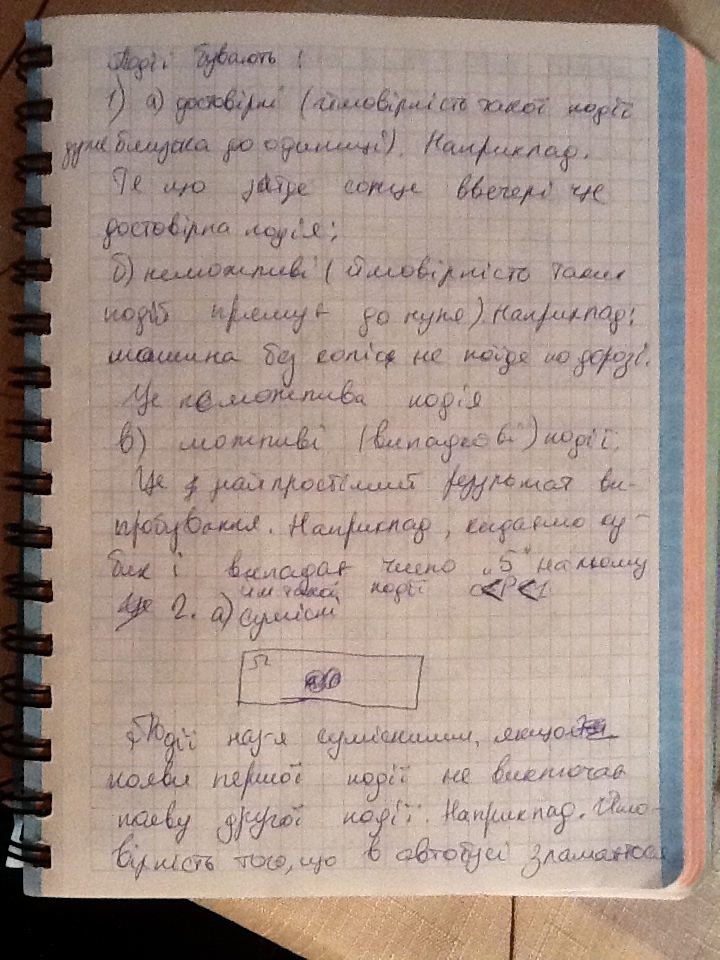 Події бувають:
1) а) достовірні (ймовірність такої події
дуже близька до одиниці). Наприклад.
Те що зайде сонце ввечері це
достовірна подія;
б) неможливі (ймовірність таких
подій прямує до нуля) Наприклад:
машина без коліс не поїде по дорозі.
Це неможлива подія
в) можливі (випадкові) події.
Це є найпростіший результат ви-
пробування. Наприклад, кидаємо ку-
бик і випадає число "5" на ньому
ця подія 0<P<1
2. а) сумісні
Ω
Події наз-я сумісними, якщо
поява першої події не виключає
появу другої події. Наприклад. Ймо-
вірність того, що в автобусі зламалося